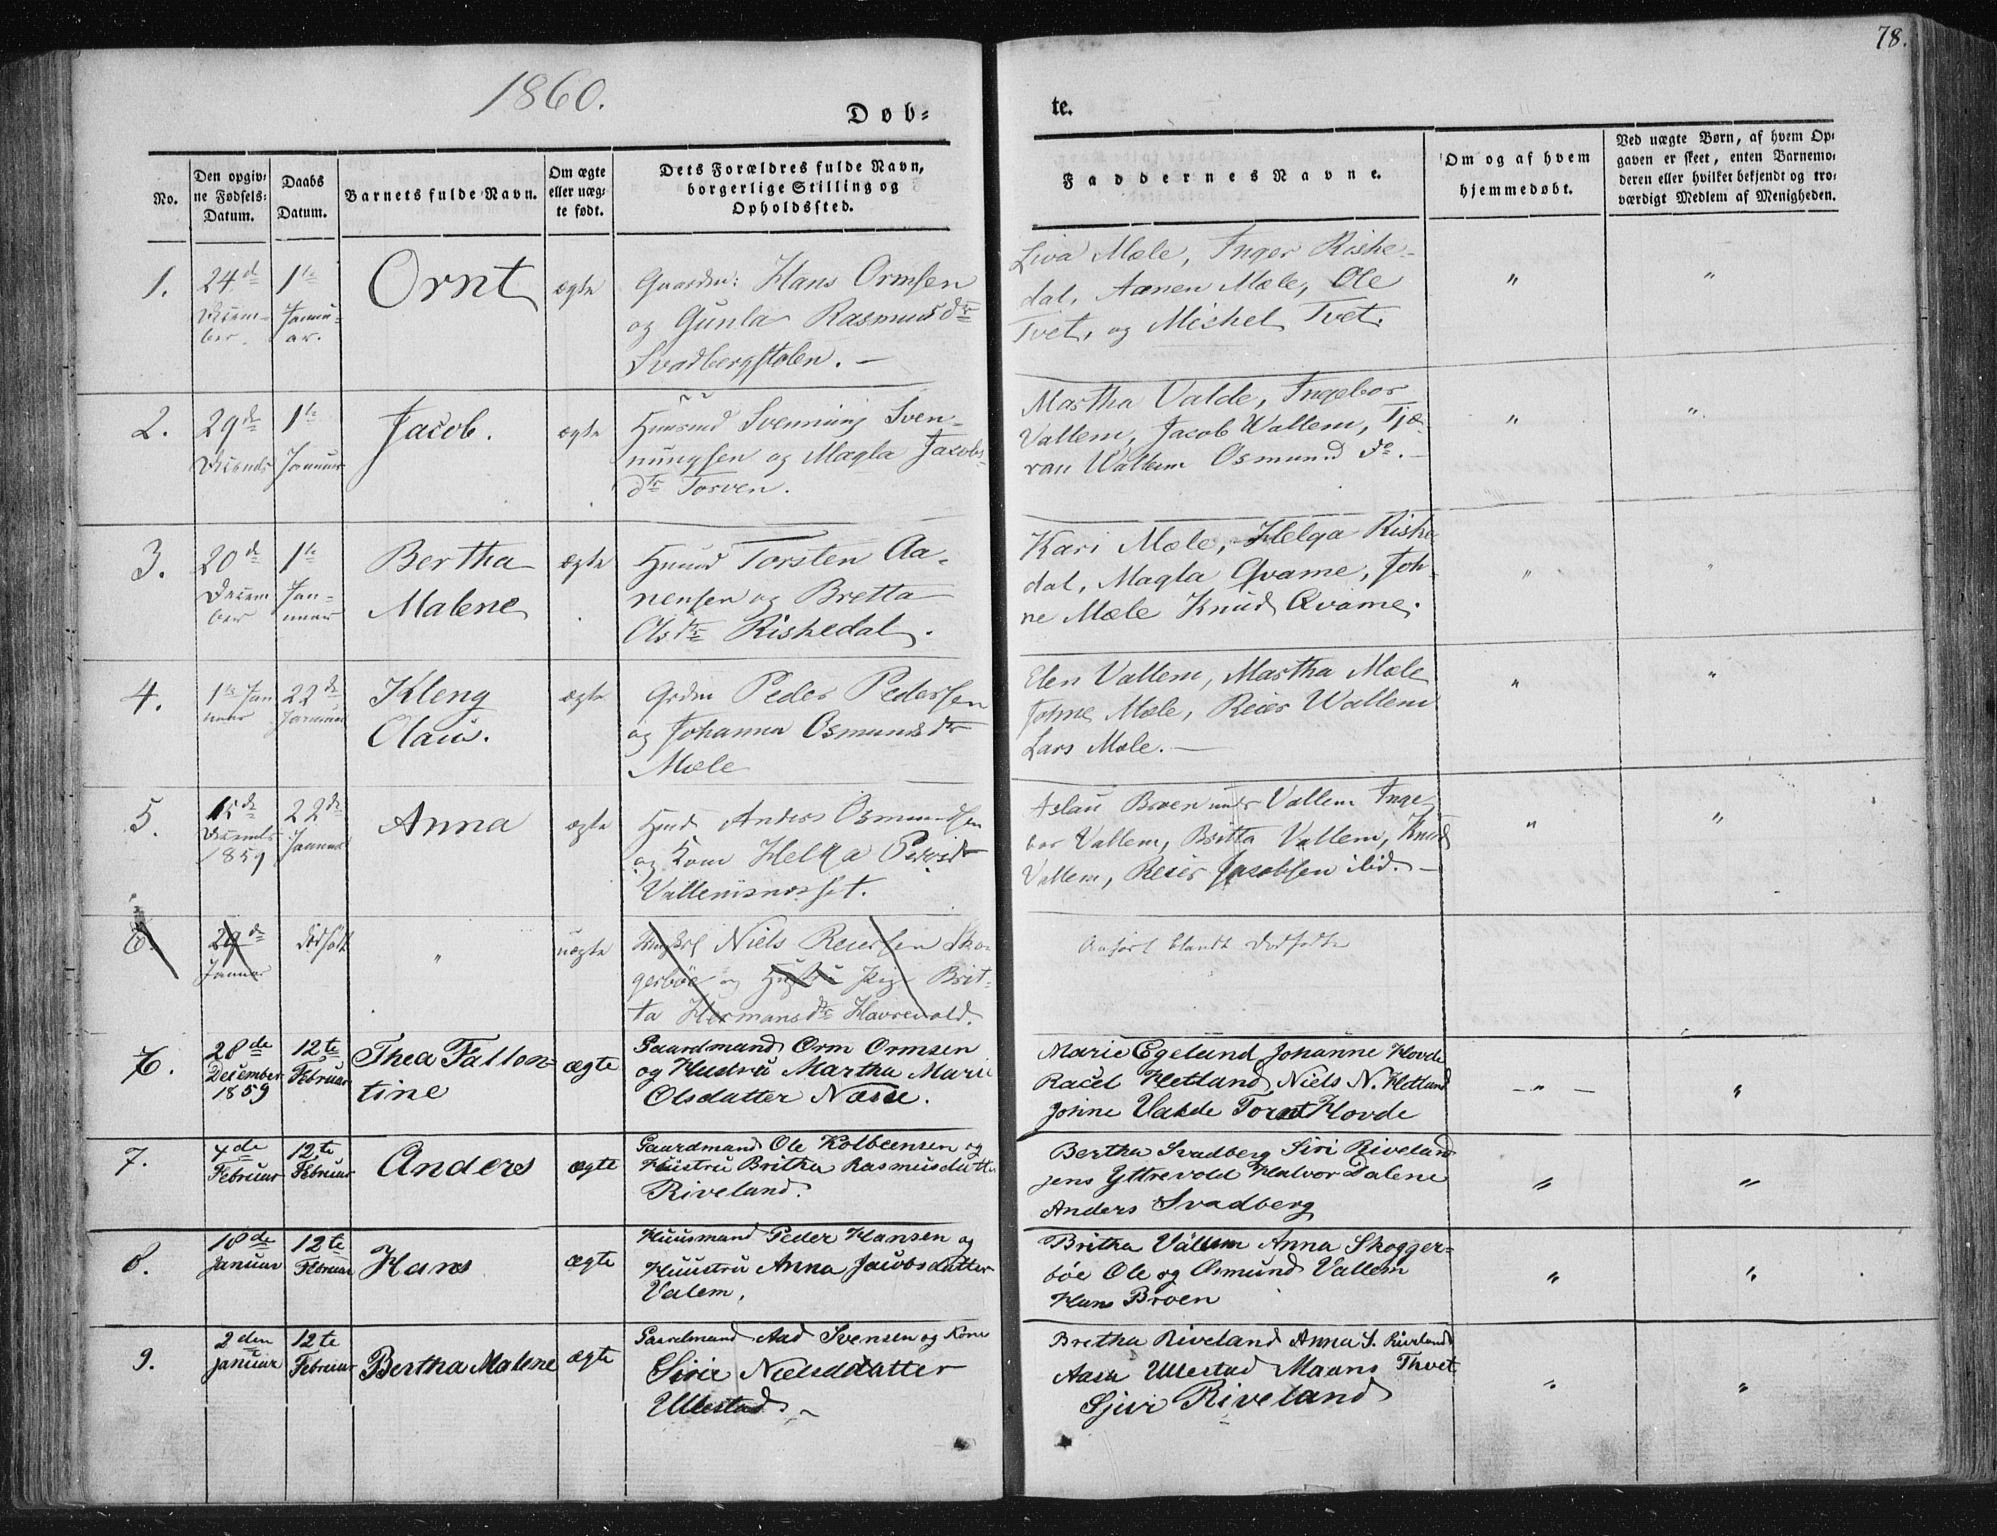 78.
1860.
Døb-
te.
No.
Den opgiv-
ne Fødsels-
Datum.
Daabs
Datum.
Barnets fulde Navn.
Om ægte
eller uæg-
te født.
Dets Forældres fulde Navn,
borgerlige Stilling og
Opholdssted.
Faddernes Navne.
Om og af hvem
hjemmedøbt.
Ved uægte Børn, af hvem Op-
gaven er skeet, enten Barnemo-
deren eller hvilket bekjendt og tro-
værdigt Medlem af Menigheden.
1.
24d
Decem-
ber.
1te
Janu-
ar.
Ornt
ægte
Gaardm: Hans Ormsen
og Gunla Rasmusdtr
Svadbergstølen. –
Liva Mæle, Inger Riske-
dal, Aanen Mæle, Ole
Tvet, og Mickel Tvet.
"
"
2.
29de
1te
Januar
Jacob.
ægte
Huusmd Svenning Sven-
nungsen og Magla Jacobs-
dtr Torven.
Martha Valde, Ingebor
Vallem, Jacob Wallem, Tjæ-
ran Wallem Osmund do. –
"
"
3.
20de
Decem
ber
1te
Jan-
uar
Bertha
Malene
ægte
Huusmd Torsten Aa-
nensen og Bretta
Olsdtr Riskedal.
Kari Mæle, Helga Riske
dal, Magla Qvame, Joh-
ne Mæle Knud Qvame.
"
"
4.
1te Jan
uar
22de
Januar
Kleng
Olaus.
ægte
Grdm Peder Pedersen
og Johanna Osmundsdtr
Mæle
Elen Vallem, Martha Mæle
Johne Mæle, Reier Wallem
Lars Mæle. –
"
"
5.
15de
1859
22de
Januar
Anna
ægte
Husmd Anders Osmundsen
og Kone Helga Pedersdtr
Vallemsnesset.
Aslau Broen under Vallem Inge-
bor Vallem, Britta Vallem, Knud
Vallem, Reier Jacobsen ibid. –
"
"
6.
29de
Januar
dødfødt
"
uægte
Ungkrl Niels Reiersen Sko-
gerbøe og Hustru Pige Brit-
ta Hermansdtr Havrevold.
Anført blandt Dødfødte
6.
28de
December
1859
12te
Februar
Thea Fallon-
tine
ægte
Gaardmand Orm Ormsen
og Hustru Martha Marie
Olsdatter Næsse.
Marie Egeland Johanne Hovde
Racel Hetland Niels N. Hetland
Johne Valde Tornt Hovde
– " –
"
7.
4de
Februar
12te
Februar
Anders
ægte
Gaardmand Ole Kolbeensen og
Huustru Britha Rasmusdatter
Riveland.
Bertha Svadberg Siri Riveland
Jens Yttrevold Halvor Dalene
Anders Svadberg
"
"
8.
18de
Januar
12te
Februar
Hans
ægte
Huusmand Peder Hansen og
Huustru Anna Jacobsdatter
Valem.
Britha Vallem Anna Skogger-
bøe Ole og Osmund Vallem
Hans Broen
"
"
9.
2den
Januar
12te
Februar
Bertha Malene
ægte
Gaardmand Aad Svensen og Kone
Sirie Nielsdatter
Ullestad. ~
Bretha Riveland Anna S. Riveland
Aasa Ullestad Maans Thvet
Sjur Riveland
"
"